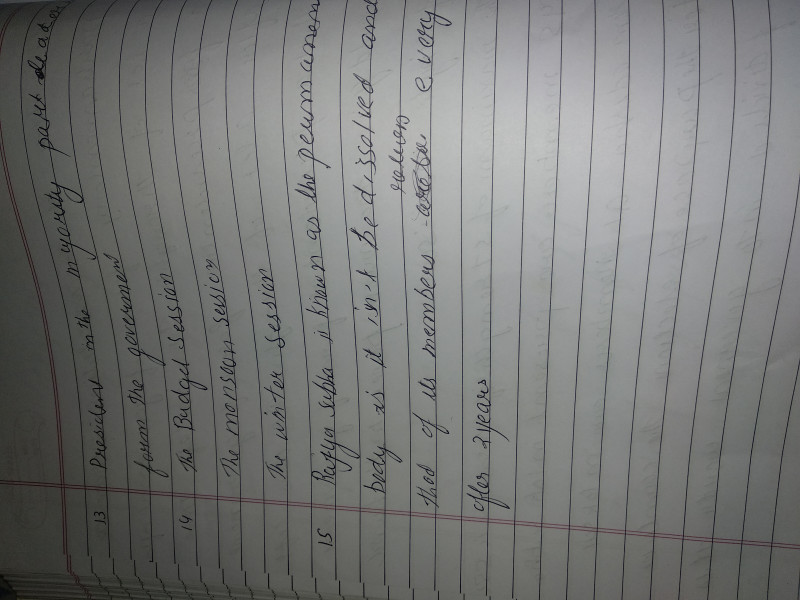 13 President in the majority part
form the government
14 The Budget session
The monsoon session
The winter session
15 Rajya sabha is known as the permanen
body as it isn't be dissolved and
thod of its members return every
after 2 years